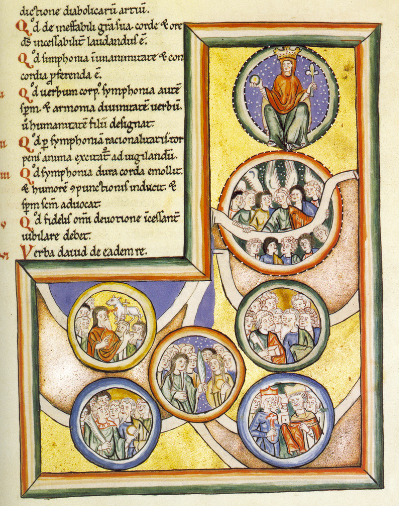 duessione diabolicarum artium.
Qd de ineffabili gr̄a sua corde & ore
d̄s incessabilit̄ laudandus ē.
Qd simphonia in unanimitate & con
cordia p̄ferenda ē.
Qd uerbum corp̄. symphonia aut̄
sp̄m. & armonia diuinitatē uerbū
ū humanitatē filii designat.
Qd p̄ symphoniā racionalitatis tor
pens anima excitat̄ ad uigilandū.
Qd symphonia dura corda emollit.
& humorē cōpunctionis inducit. &
sp̄m sc̄m aduocat.
Qd fidelis om̄i deuotione icessant̄
iubilare debet.
Verba dauid de eadem re.